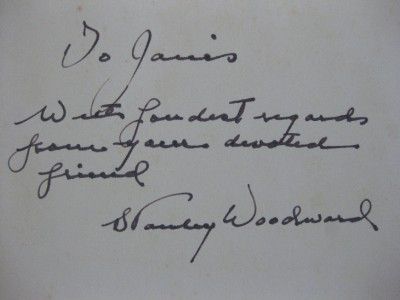 To Janis
With fondest regards
from your devoted
friend
Stanley Woodward